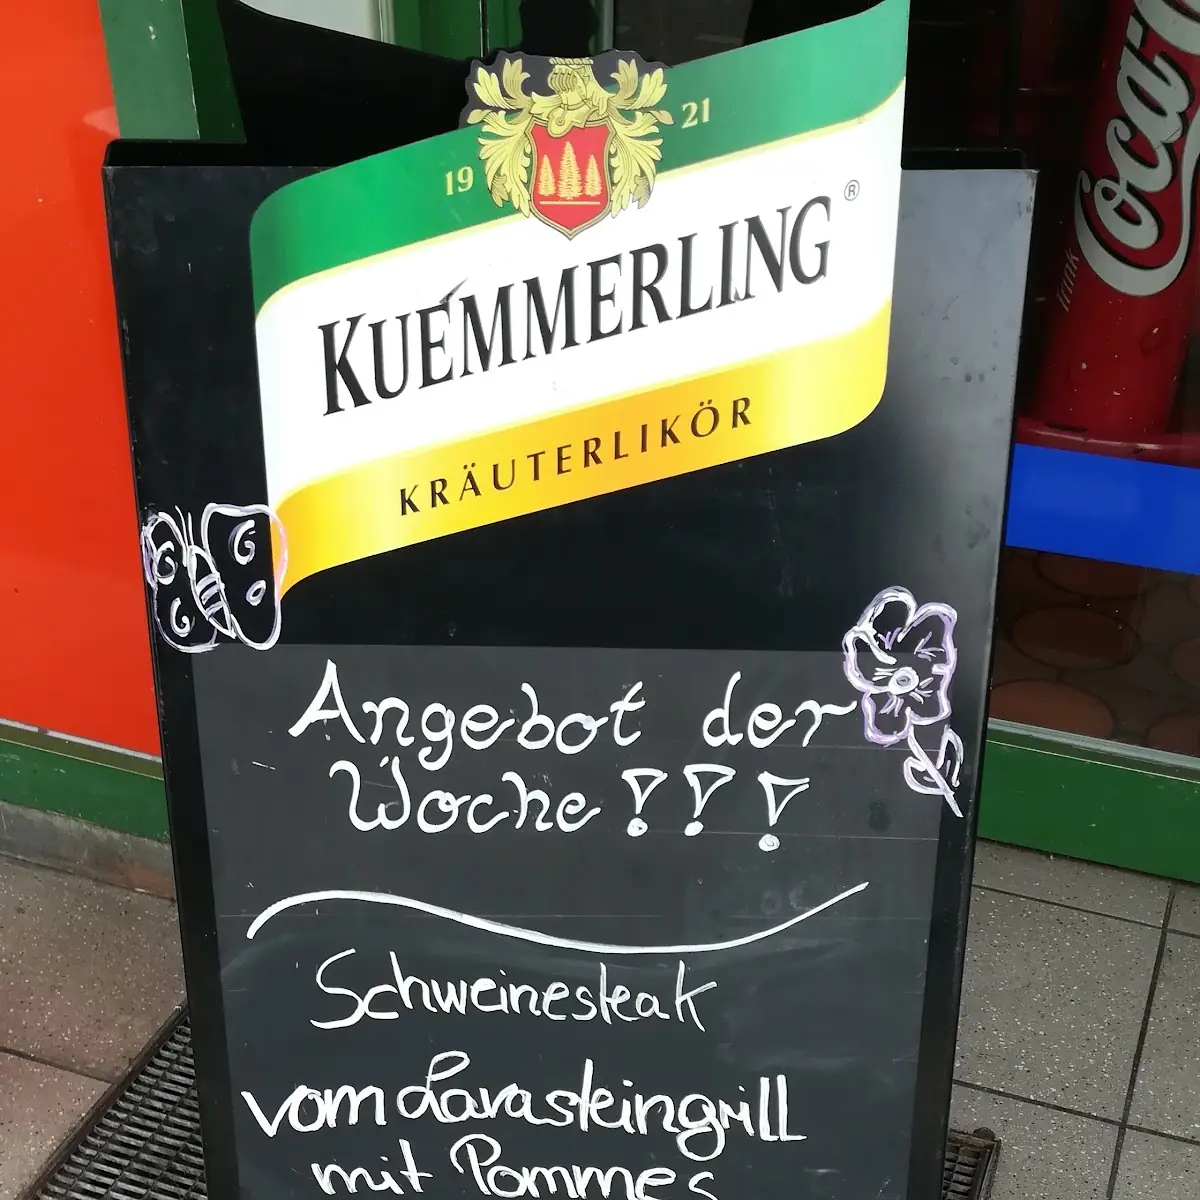 19 21
KUEMMERLING ®
KRÄUTERLIKÖR
drink
Coca
Angebot der
Woche!!!
Schweinesteak
vom Lavasteingrill
mit Pommes